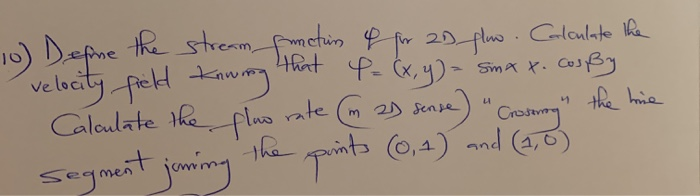 10) Define the stream function φ for 2D flow. Calculate the
velocity field knowing that φ = (x,y) = sinα x. cosβy
Calculate the flow rate (in 2D sense) "Crossing" the line
segment joining the points (0,1) and (1,0)